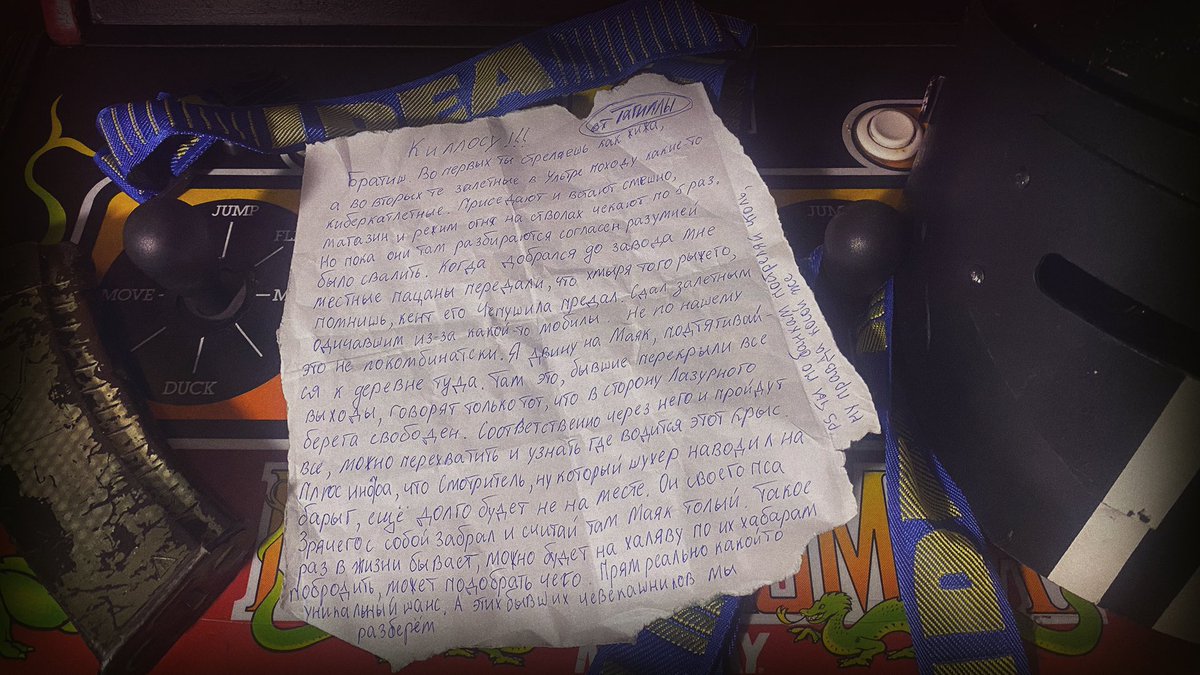 IDEA
от Тагиллы
Киллосу!!!
Братиш. Во первых ты стреляешь как хиха,
а во вторых те залетные в Ультре походу какие-то
киберкатлетные. Приседают и встают смешно,
магазин и режим огня на стволах чекают по 5 раз.
Но пока они там разбираются согласен разумней
было свалить. Когда добрался до завода мне
местные пацаны передали, что хмыря того рыжего,
помнишь, кент его Чепушила предал. Сдал залетным
одичавшим из-за какой то мобилы. Не по нашему
это не покомбинатски. Я двину на Маяк, подтягивай
ся к деревне туда. Там это, бывшие перекрыли все
выходы, говорят только тот, что в сторону Лазурного
берега свободен. Соответственно через него и пройдут
все, можно перехватить и узнать где водится этот крыс
Плюс инфа, что Смотритель, ну который шухер наводил на
барыг, ещё долго будет не на месте. Он своего пса
Зрячего с собой забрал и считай там Маяк голый. Такое
раз в жизни бывает, можно будет на халяву по их хабарам
побродить, может подобрать чего. Прям реально какой то
уникальный шанс. А этих бывших чевекашников мы
разберем
PS ты по банкам пострел
ну правда коси же
JUMP
MOVE
DUCK
JUM